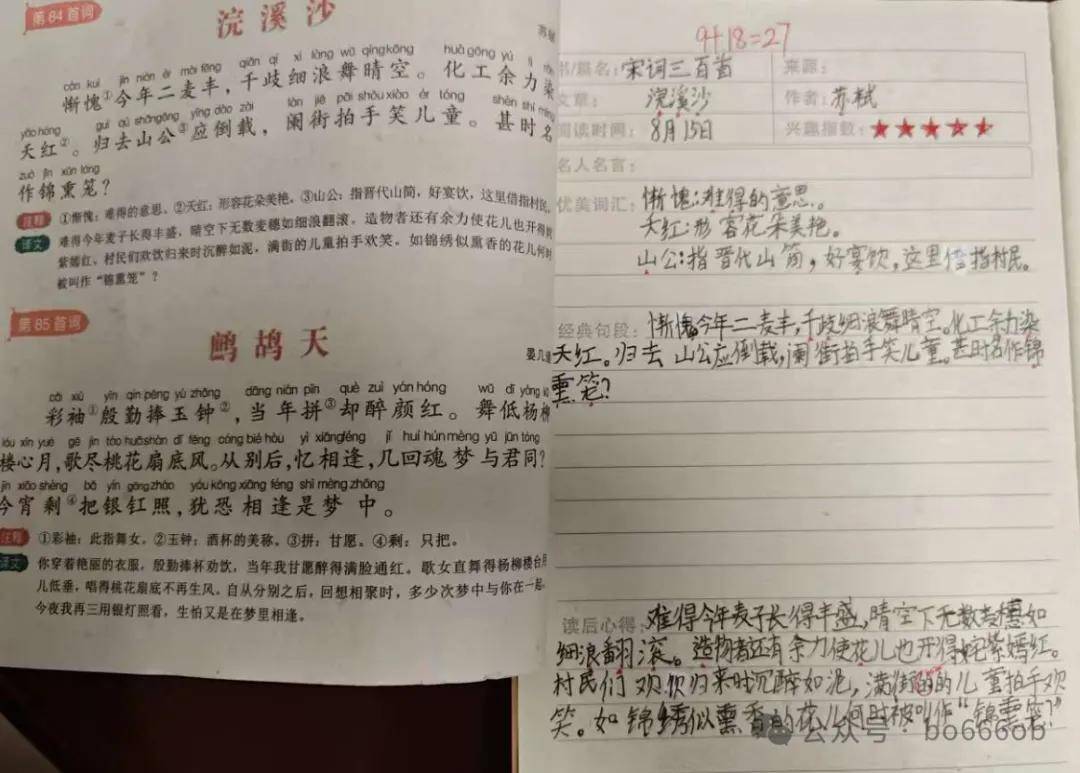 第84首词
浣溪沙
苏轼
cán kuì jīn nián èr mài fēng qiān qí xì làng wǔ qíng kōng huà gōng yú lì rǎn
惭愧①今年二麦丰，千歧细浪舞晴空。化工余力染
yāo hóng guī qù shān gōng yīng dào zài lán jiē pāi shǒu xiào ér tóng shèn shí míng
夭红②。归去山公③应倒载，阑街拍手笑儿童。甚时名
zuò jǐn xūn lóng
作锦熏笼？
注释 ①惭愧：难得的意思。②夭红：形容花朵美艳。③山公：指晋代山简，好宴饮，这里借指村民。
译文 难得今年麦子长得丰盛，晴空下无数麦穗如细浪翻滚。造物者还有余力使花儿也开得姹
紫嫣红。村民们欢饮归来时沉醉如泥，满街的儿童拍手欢笑。如锦绣似熏香的花儿何时
被叫作“锦熏笼”？
第85首词
鹧鸪天
晏几道
cǎi xiù yīn qín pěng yù zhōng dāng nián pīn què zuì yán hóng wǔ dī yáng liǔ
彩袖①殷勤捧玉钟②，当年拼③却醉颜红。舞低杨柳
lóu xīn yuè gē jìn táo huā shàn dǐ fēng cóng bié hòu yì xiāng féng jǐ huí hún mèng yǔ jūn tóng
楼心月，歌尽桃花扇底风。从别后，忆相逢，几回魂梦与君同？
jīn xiāo shèng bǎ yín gāng zhào yóu kǒng xiāng féng shì mèng zhōng
今宵剩④把银釭照，犹恐相逢是梦中。
注释 ①彩袖：此指舞女。②玉钟：酒杯的美称。③拼：甘愿。④剩：只把。
译文 你穿着艳丽的衣服，殷勤捧杯劝饮，当年我甘愿醉得满脸通红。歌女直舞得杨柳楼台月
儿低垂，唱得桃花扇底不再生风。自从分别之后，回想相聚时，多少次梦中与你在一起。
今夜我再三用银灯照看，生怕又是在梦里相逢。
9+18=27
书/篇名：宋词三百首 来源：
文章：浣溪沙 作者：苏轼
阅读时间：8月15日 兴趣指数：★★★★★
名人名言：
优美词汇：惭愧：难得的意思。
夭红：形容花朵美艳。
山公：指晋代山简，好宴饮，这里借指村民。
经典句段：惭愧今年二麦丰，千歧细浪舞晴空。化工余力染
夭红。归去山公应倒载，阑街拍手笑儿童。甚时名作锦
熏笼？
读后心得：难得今年麦子长得丰盛，晴空下无数麦穗如
细浪翻滚。造物者还有余力使花儿也开得姹紫嫣红。
村民们欢饮归来时沉醉如泥，满街的的儿童拍手欢
笑。如锦绣似熏香的花儿何时被叫作“锦熏笼？”
公众号 bo666ob